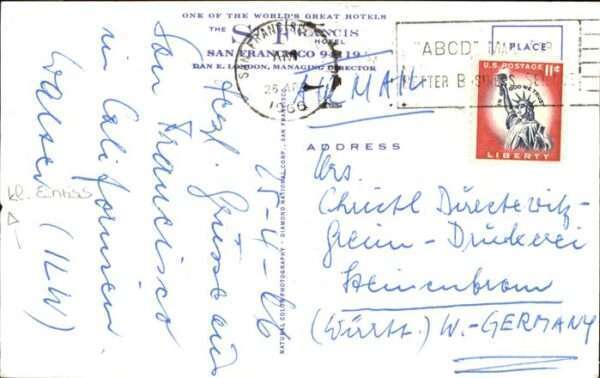 ONE OF THE WORLD'S GREAT HOTELS
THE St. Francis
HOTEL
SAN FRANCISCO 94119
DAN E. LONDON, MANAGING DIRECTOR
25-4-66
Herzl. Grüsse aus
San Francisco
in Californien
(ILW)
kl. Einriss
NATURAL COLOR PHOTOGRAPHY - DIAMOND NATIONAL CORP., SAN FRANCISCO
SAN FRANCISCO
AM
25 APR
1966
"ABCD" MAIL
BETTER BUSINESS
PLACE
U.S. POSTAGE 11¢
IN GOD WE TRUST
LIBERTY
AIR MAIL
ADDRESS
Mrs.
Christl
Greiner-Druckerei
(Württ.) W.-GERMANY